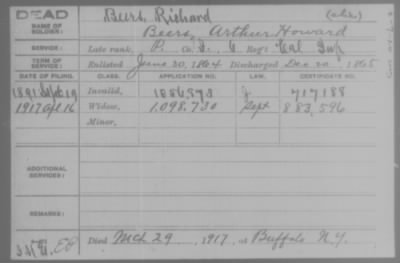 DEAD
NAME OF SOLDIER: Burs, Richard (alias)
Beers, Arthur Howard
SERVICE: Late rank, P. Co. I. 6 Reg't Cal Inf
TERM OF SERVICE: Enlisted June 20, 1864 Discharged Dec 20 1865
DATE OF FILING. CLASS. APPLICATION NO. LAW. CERTIFICATE NO.
1891 Invalid, 717188
1917 Apl 16 Widow, 1.098.730 Sept 883,596
Minor,
ADDITIONAL SERVICES:
REMARKS:
Died Mch 29, 1917, at Buffalo N.Y.